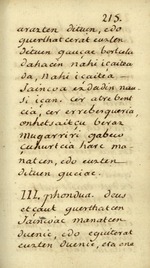 215.
arazten dituen, edo
guerthatcerat euzten
dituen gauçac borthitz
dahacin nahi içaitea
da, nahi içaitea
Jaincoa ez dadin nau-
si içan. cer atrebent
cia, cer erreberqueria
onhetsaitic cerraz
mugarriri gabeco
çuhurtcia hari ma-
natcen, edo euzten
dituen guciac.
III. phondua. Deus
etçaut guerthatcen
Jaincoac manatcen
duenic, edo equiterat
euzten duenic, eta ene